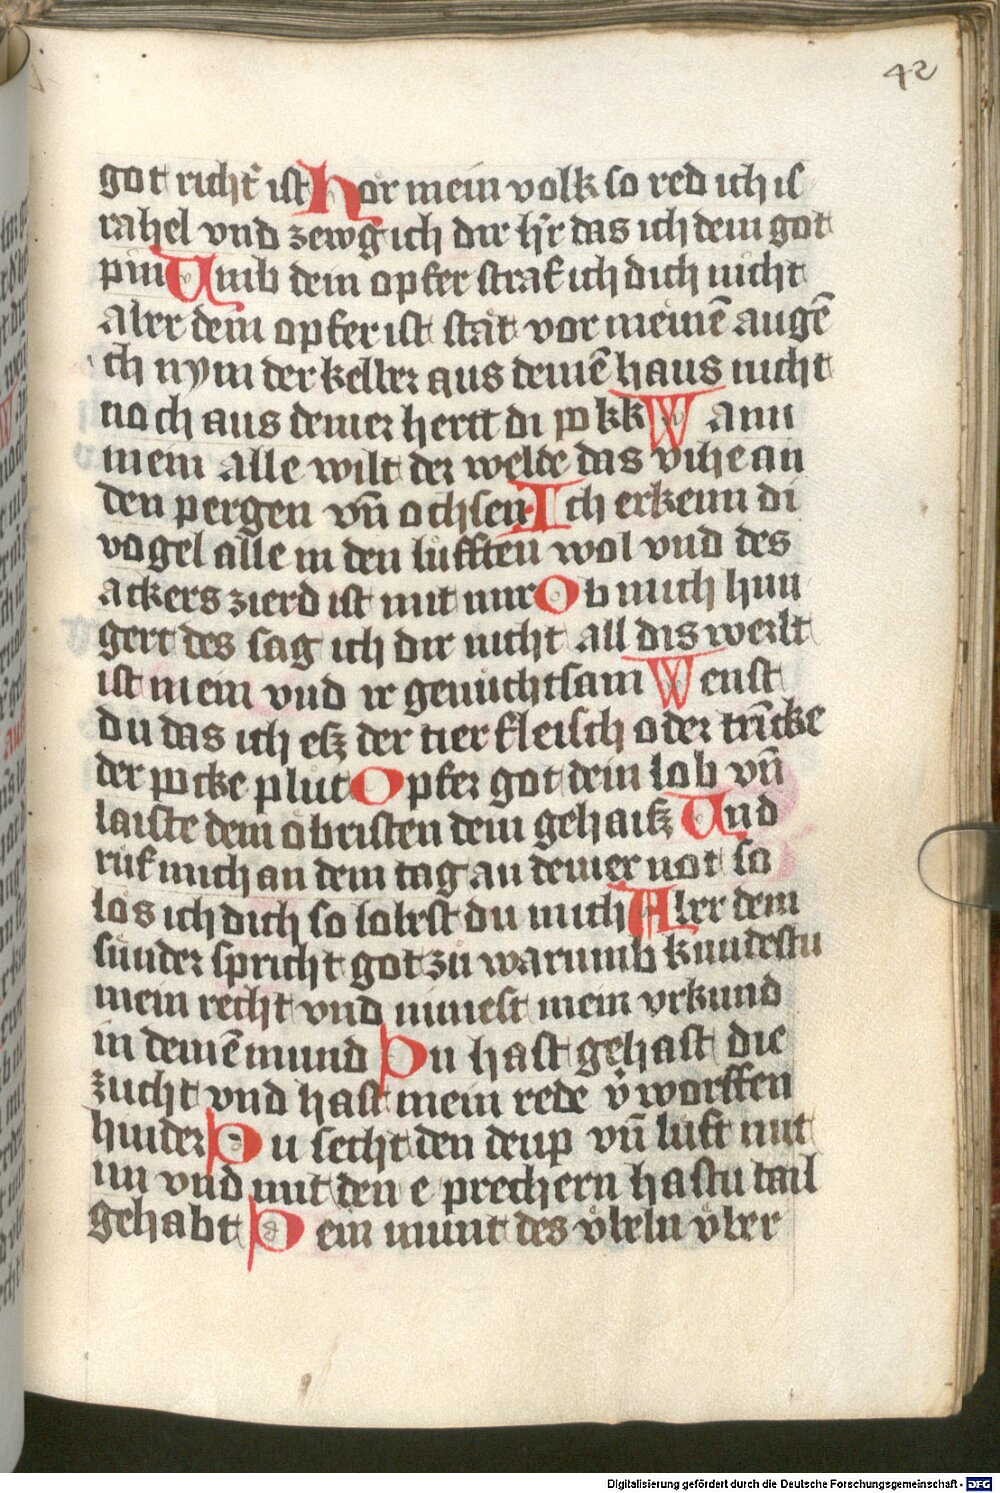 42
got richt᷑ ist Hor mein volk so red ich is
rahel vnd zewg ich dir h᷑r das ich dein got
pin Vmb dem opfer straf ich dich nicht
Aber dein opfer ist stät vor meinē augē
Ich nym der kelber aus deinē haus nicht
noch aus deiner hertt di pokk Wann
mein alle wilt der welde das vihe an
den pergen vn̄ ochsen Ich erkenn di
vogel alle in den lüfften wol vnd des
ackers zierd ist mit mir Ob mich hun
gert des sag ich dir nicht all dis werlt
ist mein vnd ir genuchtsam Wenst
du das ich eß der tier fleisch oder trīcke
der pocke plut Opfer got dein lob vn̄
laiste dem obristen dein gehaiß Und
ruf mich an dem tag an deiner not so
lös ich dich so lobest du mich Aber dem
sünder spricht got zu warumb kundestu
mein recht vnd nimest mein vrkund
in deinē mund Du hast gehast die
zucht vnd hast mein rede v̓worffen
hinder Du secht den deup vn̄ luft mit
im vnd mit den e prechern hastu tail
gehabt Dein munt des vbeln vber
Digitalisierung gefördert durch die Deutsche Forschungsgemeinschaft - DFG